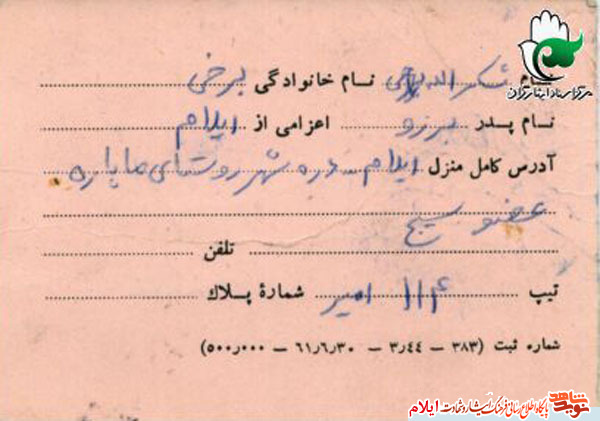 مرکز اسناد ایثارگران
نام شکراله نام خانوادگی برخی
نام پدر برزو اعزامی از ایلام
آدرس کامل منزل ایلام - دره شهر روستای ماپاره
عضو بسیج
تلفن
تیپ ۱۱۴ امیر شمارهٔ پلاک
شماره ثبت (۳۸۳ – ۳٫۴۴ – ۶۱٫۶٫۳۰ – ۵۰۰٫۰۰۰)
نوید شاهد پایگاه اطلاع رسانی فرهنگ ایثار و شهادت ایلام